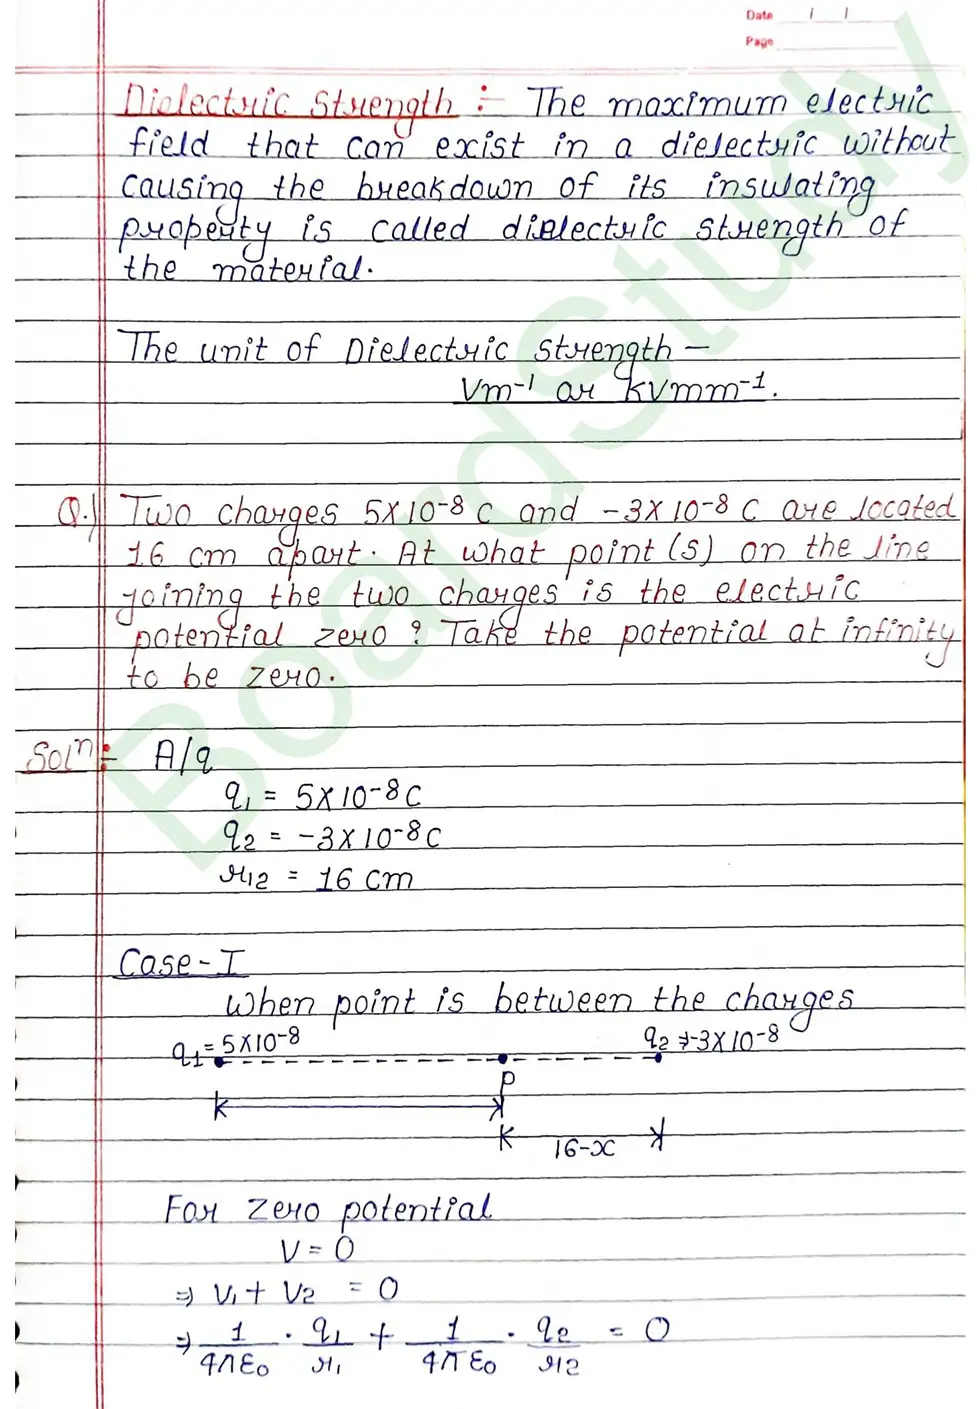 Date / /
Page
Dielectric Strength :- The maximum electric
field that can exist in a dielectric without
causing the breakdown of its insulating
property is called dielectric strength of
the material.
The unit of Dielectric Strength –
Vm⁻¹ or kVmm⁻¹.
Q.) Two charges 5×10⁻⁸ C and -3×10⁻⁸ C are located
16 cm apart. At what point(s) on the line
joining the two charges is the electric
potential zero? Take the potential at infinity
to be zero.
Solⁿ :- A/q
q₁ = 5×10⁻⁸C
q₂ = -3×10⁻⁸C
r₁₂ = 16 cm
Case-I
When point is between the charges
q₁ = 5×10⁻⁸ q₂ = -3×10⁻⁸
P
16-x
For zero potential
V = 0
⇒ V₁ + V₂ = 0
⇒ 1/4πε₀ · q₁/r₁ + 1/4πε₀ · q₂/r₂ = 0
BoardStudy